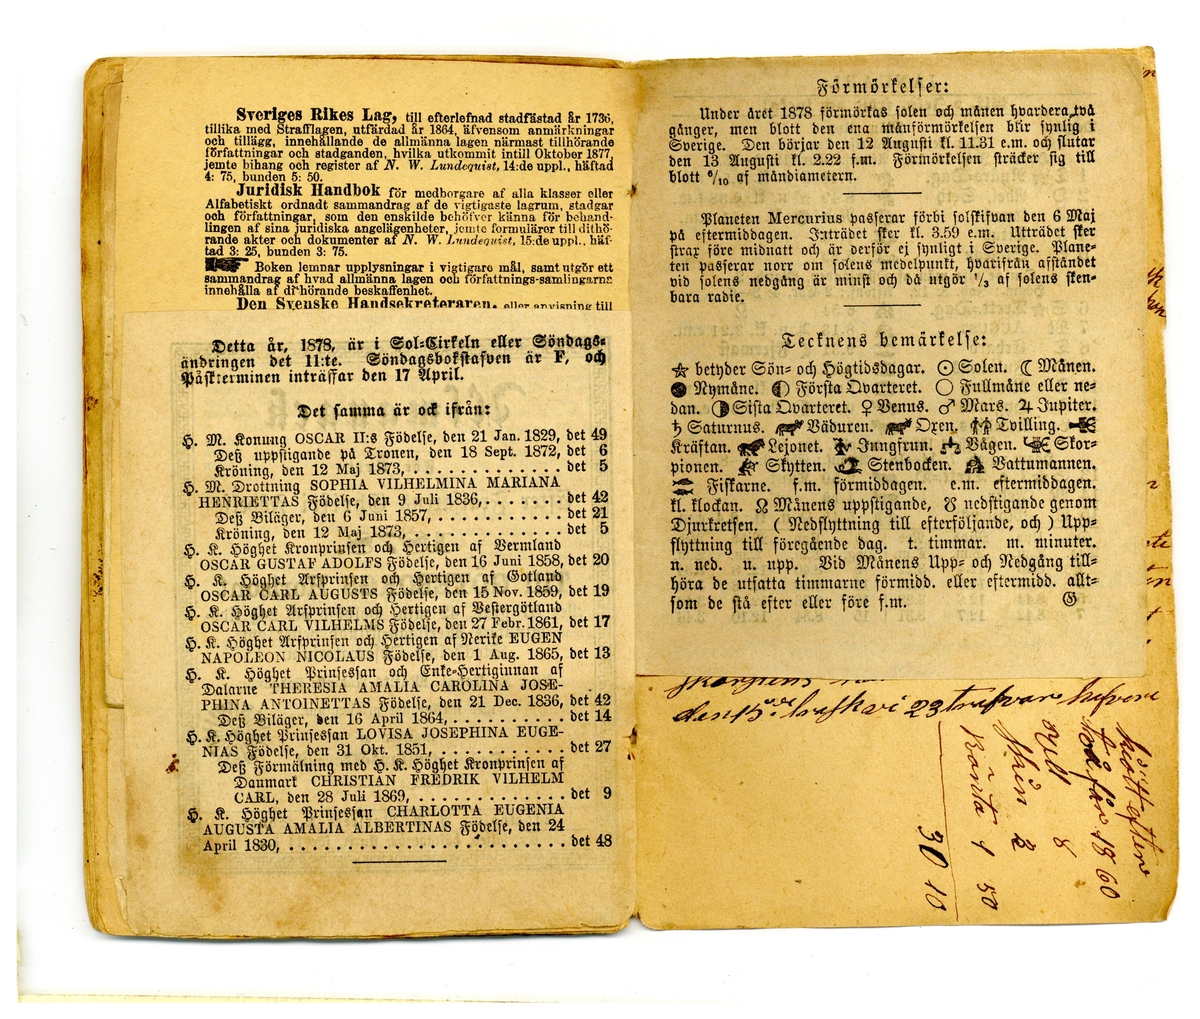 Sveriges Rikes Lag, till efterlefnad stadfästad år 1736,
tillika med Strafflagen, utfärdad år 1864, äfvensom anmärkningar
och tillägg, innehållande de allmänna lagen närmast tillhörande
författningar och stadganden, hvilka utkommit intill Oktober 1877,
jemte bihang och register af N. W. Lundequist, 14:de uppl., häftad
4: 75, bunden 5: 50.
Juridisk Handbok för medborgare af alla klasser eller
Alfabetiskt ordnadt sammandrag af de vigtigaste lagrum, stadgar
och författningar, som den enskilde behöfver känna för behand-
lingen af sina juridiska angelägenheter, jemte formulärer till dithö-
rande akter och dokumenter af N. W. Lundequist, 15:de uppl., häf-
tad 3: 25, bunden 3: 75.
Boken lemnar upplysningar i vigtigare mål, samt utgör ett
sammandrag af hvad allmänna lagen och författnings-samlingarna
innehålla af dithörande beskaffenhet.
Den Svenske Handsekreteraren, eller anvisning till
Detta år, 1878, är i Sol-Cirkeln eller Söndags-
ändringen det 11:te. Söndagsbokstafven är F, och
Påskterminen inträffar den 17 April.
Det samma är ock ifrån:
H. M. Konung OSCAR II:s Födelse, den 21 Jan. 1829, det 49
Deß uppstigande på Tronen, den 18 Sept. 1872, det 6
Kröning, den 12 Maj 1873, . . . . . . . . . . . . . . det 5
H. M. Drottning SOPHIA VILHELMINA MARIANA
HENRIETTAS Födelse, den 9 Juli 1836, . . . . . . . det 42
Deß Biläger, den 6 Juni 1857, . . . . . . . . . . . . det 21
Kröning, den 12 Maj 1873, . . . . . . . . . . . . . . det 5
H. K. Höghet Kronprinsen och Hertigen af Vermland
OSCAR GUSTAF ADOLFS Födelse, den 16 Juni 1858, det 20
H. K. Höghet Arfprinsen och Hertigen af Gotland
OSCAR CARL AUGUSTS Födelse, den 15 Nov. 1859, det 19
H. K. Höghet Arfprinsen och Hertigen af Vestergötland
OSCAR CARL VILHELMS Födelse, den 27 Febr. 1861, det 17
H. K. Höghet Arfprinsen och Hertigen af Nerike EUGEN
NAPOLEON NICOLAUS Födelse, den 1 Aug. 1865, det 13
H. K. Höghet Prinsessan och Enke-Hertiginnan af
Dalarne THERESIA AMALIA CAROLINA JOSE-
PHINA ANTOINETTAS Födelse, den 21 Dec. 1836, det 42
Deß Biläger, den 16 April 1864, . . . . . . . . . . . det 14
H. K. Höghet Prinsessan LOVISA JOSEPHINA EUGE-
NIAS Födelse, den 31 Okt. 1851, . . . . . . . . . . . det 27
Deß Förmälning med H. K. Höghet Kronprinsen af
Danmark CHRISTIAN FREDRIK VILHELM
CARL, den 28 Juli 1869, . . . . . . . . . . . . . . . det 9
H. K. Höghet Prinsessan CHARLOTTA EUGENIA
AUGUSTA AMALIA ALBERTINAS Födelse, den 24
April 1830, . . . . . . . . . . . . . . . . . . . . . . . . . . det 48
Förmörkelser:
Under året 1878 förmörkas solen och månen hvardera två
gånger, men blott den ena månförmörkelsen blir synlig i
Sverige. Den börjar den 12 Augusti kl. 11.31 e.m. och slutar
den 13 Augusti kl. 2.22 f.m. Förmörkelsen sträcker sig till
blott 6/10 af måndiametern.
Planeten Mercurius passerar förbi solskifvan den 6 Maj
på eftermiddagen. Inträdet sker kl. 3.59 e.m. Utträdet sker
strax före midnatt och är derför ej synligt i Sverige. Plane-
ten passerar norr om solens medelpunkt, hvarifrån afståndet
vid solens nedgång är minst och då utgör 1/3 af solens sken-
bara radie.
Tecknens bemärkelse:
☆ betyder Sön- och Högtidsdagar. ☉ Solen. ☾ Månen.
● Nymåne. ◐ Första Qvarteret. ○ Fullmåne eller ne-
dan. ◑ Sista Qvarteret. ♀ Venus. ♂ Mars. ♃ Jupiter.
♄ Saturnus. Väduren. Oxen. Tvilling.
Kräftan. Lejonet. Jungfrun. Vågen. Skor-
pionen. Skytten. Stenbocken. Vattumannen.
Fiskarne. f.m. förmiddagen. e.m. eftermiddagen.
kl. klockan. ☊ Månens uppstigande, ☋ nedstigande genom
Djurkretsen. ( Nedflyttning till efterföljande, och ) Upp-
flyttning till föregående dag. t. timmar. m. minuter.
n. ned. u. upp. Vid Månens Upp- och Nedgång till-
höra de utsatta timmarne förmidd. eller eftermidd. allt-
som de stå efter eller före f.m.
den 15 23 trafvar
1860
8
2
Ränta 1 50
30 10